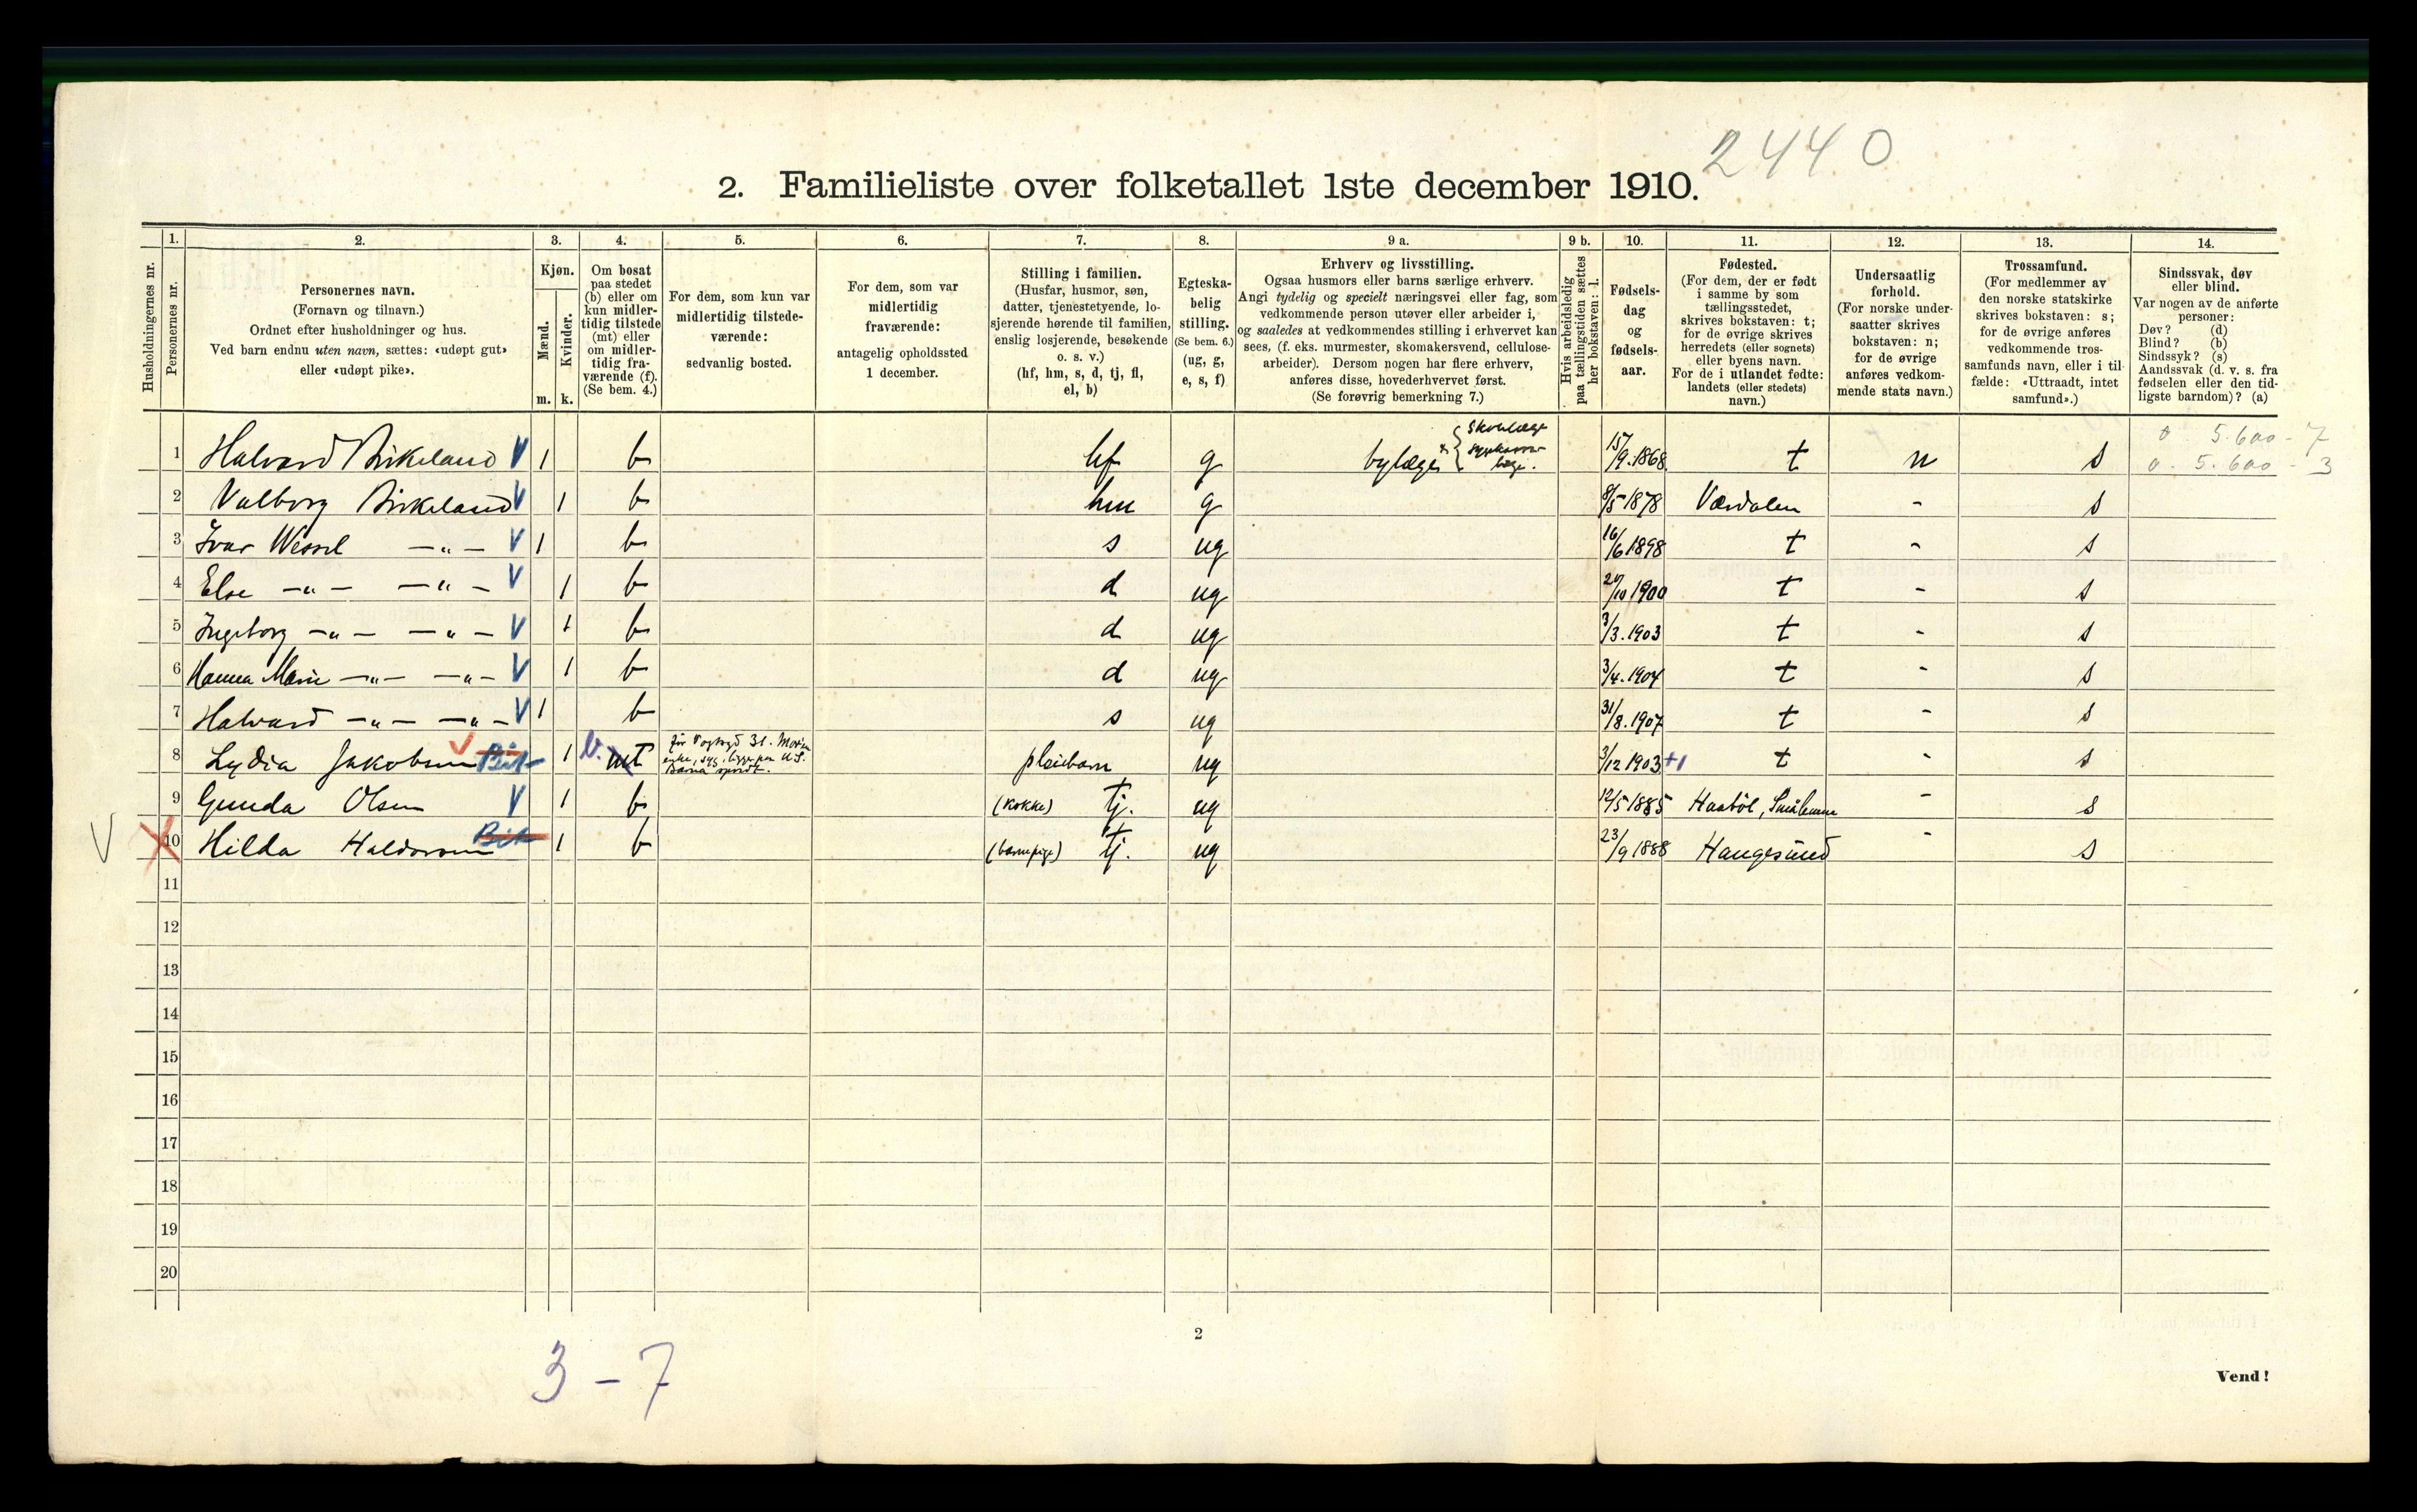 2440
2. Familieliste over folketallet 1ste december 1910.
1. 2. 3. 4. 5. 6. 7. 8. 9 a. 9 b. 10. 11. 12. 13. 14.
Husholdningernes nr.
Personernes nr.
Personernes navn.
(Fornavn og tilnavn.)
Ordnet efter husholdninger og hus.
Ved barn endnu uten navn, sættes: «udøpt gut»
eller «udøpt pike».
Kjøn.
Mænd.
Kvinder.
m. k.
Om bosat
paa stedet
(b) eller om
kun midler-
tidig tilstede
(mt) eller
om midler-
tidig fra-
værende (f).
(Se bem. 4.)
For dem, som kun var
midlertidig tilstede-
værende:
sedvanlig bosted.
For dem, som var
midlertidig
fraværende:
antagelig opholdssted
1 december.
Stilling i familien.
(Husfar, husmor, søn,
datter, tjenestetyende, lo-
sjerende hørende til familien,
enslig losjerende, besøkende
o. s. v.)
(hf, hm, s, d, tj, fl,
el, b)
Egteska-
belig
stilling.
(Se bem. 6.)
(ug, g,
e, s, f)
Erhverv og livsstilling.
Ogsaa husmors eller barns særlige erhverv.
Angi tydelig og specielt næringsvei eller fag, som
vedkommende person utøver eller arbeider i,
og saaledes at vedkommendes stilling i erhvervet kan
sees, (f. eks. murmester, skomakersvend, cellulose-
arbeider). Dersom nogen har flere erhverv,
anføres disse, hovederhvervet først.
(Se forøvrig bemerkning 7.)
Hvis arbeidsledig
paa tællingstiden sættes
her bokstaven: l.
Fødsels-
dag
og
fødsels-
aar.
Fødested.
(For dem, der er født
i samme by som
tællingsstedet,
skrives bokstaven: t;
for de øvrige skrives
herredets (eller sognets)
eller byens navn.
For de i utlandet fødte:
landets (eller stedets)
navn.)
Undersaatlig
forhold.
(For norske under-
saatter skrives
bokstaven: n;
for de øvrige
anføres vedkom-
mende stats navn.)
Trossamfund.
(For medlemmer av
den norske statskirke
skrives bokstaven: s;
for de øvrige anføres
vedkommende tros-
samfunds navn, eller i til-
fælde: «Uttraadt, intet
samfund».)
Sindssvak, døv
eller blind.
Var nogen av de anførte
personer:
Døv? (d)
Blind? (b)
Sindssyk? (s)
Aandssvak (d. v. s. fra
fødselen eller den tid-
ligste barndom)? (a)
1 Halvard Birkeland V 1 b hf g bylæge skolelæge 15/9.1868 t n s 5.600 - 7
5.600 - 3
2 Valborg Birkeland V 1 b hm g 8/5 1878 Værdalen - s
3 Ivar Wessel —„— V 1 b s ug 16/6 1898 t - s
4 Else —„— —„— V 1 b d ug 27/10 1900 t - s
5 Ingeborg —„— —„— V 1 b d ug 3/3.1903 t - s
6 Hanna Marie —„— —„— V 1 b d ug 3/4.1904 t - s
7 Halvard —„— —„— V 1 b s ug 31/8.1907 t - s
8 Lydia Jakobsen V 1 b. mt pleiebarn ug 3/12 1903 +1 t - s
9 Gunda Olsen V 1 b (kokke) tj. ug 12/5 1885 Haabøl, Smålenene - s
V X 10 Hilda Haldorsen 1 b (barnepige) tj. ug 23/9 1888 Haugesund - s
11
12
13
14
15
16
17
18
19
20
2
3 - 7
Vend!